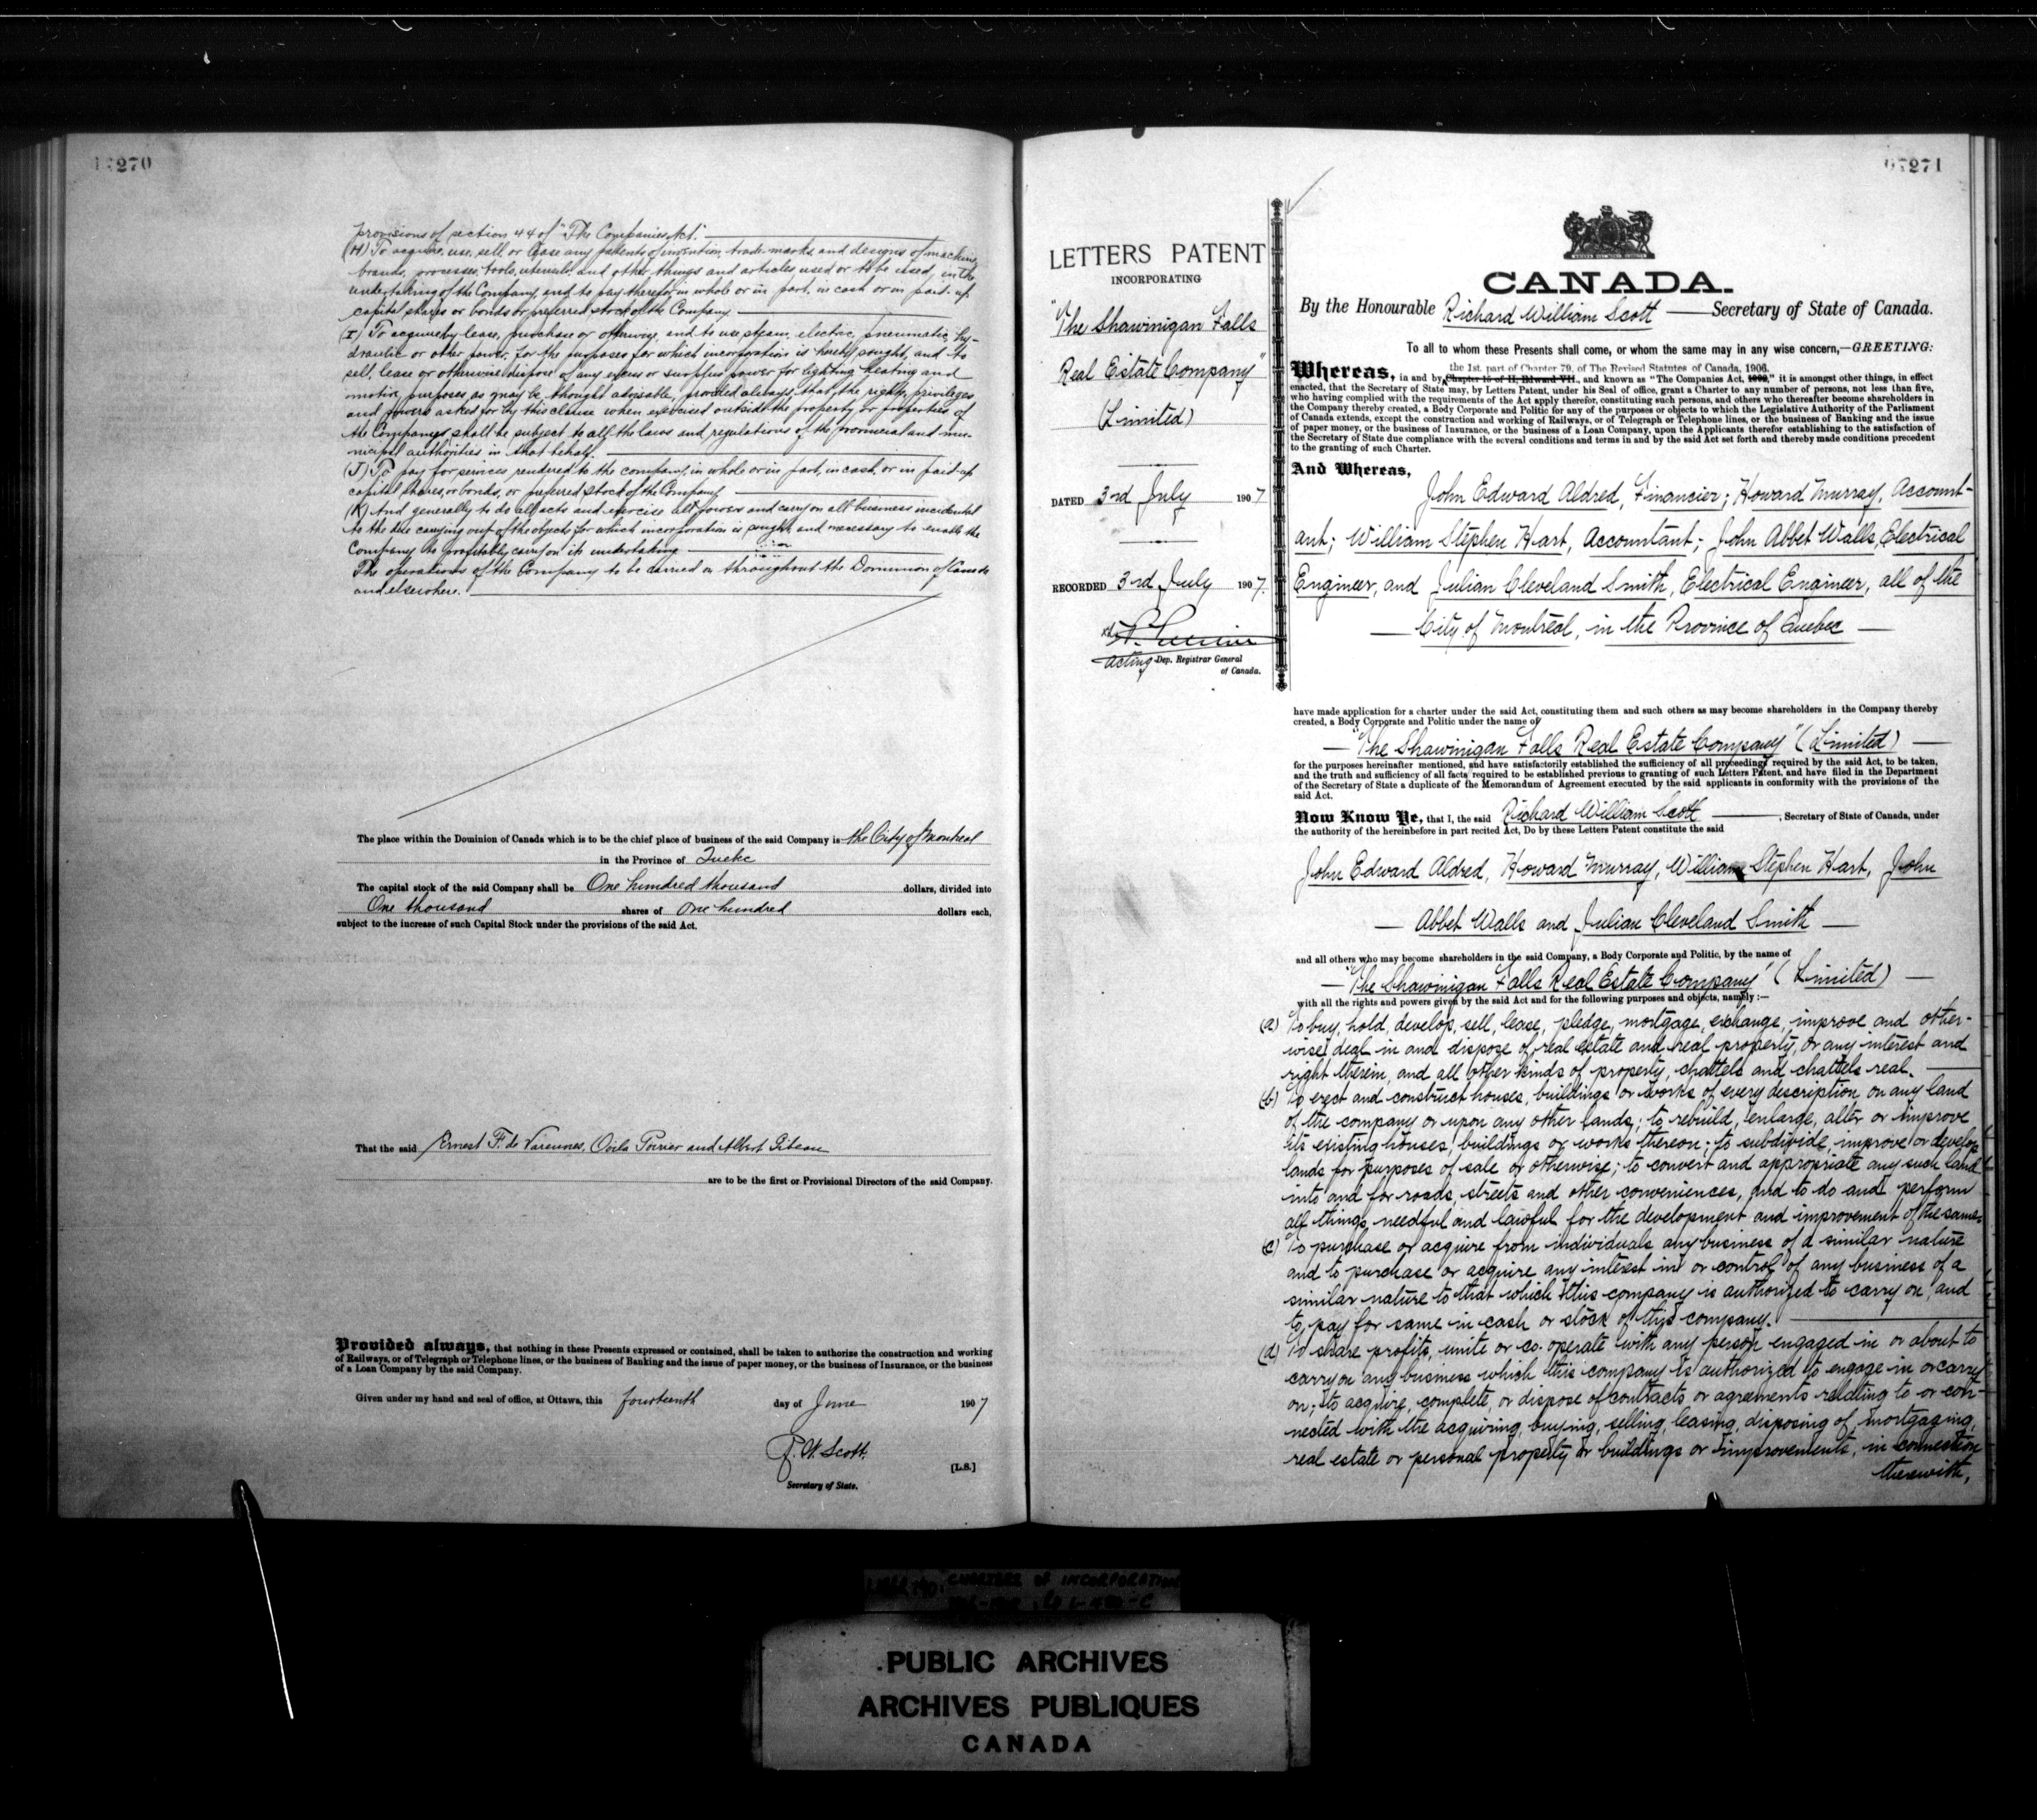 270
provisions of section 44 of "The Companies Act".
(H) To acquire, use, sell, or lease any patents of invention, trade-marks and designs of machine,
brands, processes, tools, utensils, and other things and articles used or to be used, in the
undertaking of the Company, and to pay therefor in whole or in part, in cash or in paid-up
capital shares or bonds or preferred stock of the Company
(I) To acquire by lease, purchase or otherwise, and to use steam, electric, pneumatic, hy-
draulic or other power, for the purposes for which incorporation is hereby sought, and to
sell, lease or otherwise dispose of any excess or surplus power for lighting heating and
motive purposes as may be thought advisable, provided always that the rights, privileges
and powers asked for by this clause when exercised outside the property or properties of
the Companys shall be subject to all the laws and regulations of the provincial and mu-
nicipal authorities in that behalf.
(J) To pay for services rendered to the company, in whole or in part, in cash, or in paid-up
capital shares, or bonds, or preferred stock of the Company
(K) And generally to do all acts and exercise all power and carry on all business incidental
to the due carrying out of the objects for which incorporation is sought and necessary to enable the
Company to profitably carry on its undertaking
The operations of the Company to be carried on throughout the Dominion of Canada
and elsewhere.
The place within the Dominion of Canada which is to be the chief place of business of the said Company is the City of Montreal
in the Province of Quebec
The capital stock of the said Company shall be One hundred thousand dollars, divided into
One thousand shares of one hundred dollars each,
subject to the increase of such Capital Stock under the provisions of the said Act.
That the said Ernest F. de Varennes, Ovila Poirier and Albert Piteau
are to be the first or Provisional Directors of the said Company.
Provided always, that nothing in these Presents expressed or contained, shall be taken to authorise the construction and working
of Railways, or of Telegraph or Telephone lines, or the business of Banking and the issue of paper money, or the business of Insurance, or the business
of a Loan Company by the said Company.
Given under my hand and seal of office, at Ottawa, this fourteenth day of June 1907
R. W. Scott.
[L.S.]
Secretary of State.
271
LETTERS PATENT
INCORPORATING
"The Shawinigan Falls
Real Estate Company"
(Limited)
DATED 3rd July 1907
RECORDED 3rd July 1907.
acting Dep. Registrar General
of Canada.
CANADA.
By the Honourable Richard William Scott Secretary of State of Canada.
To all to whom these Presents shall come, or whom the same may in any wise concern,—GREETING:
the 1st. part of Chapter 79, of The Revised Statutes of Canada, 1906.
Whereas, in and by Chapter 15 of II, Edward VII., and known as "The Companies Act, 1902," it is amongst other things, in effect
enacted, that the Secretary of State may, by Letters Patent, under his Seal of office, grant a Charter to any number of persons, not less than five,
who having complied with the requirements of the Act apply therefor, constituting such persons, and others who thereafter become shareholders in
the Company thereby created, a Body Corporate and Politic for any of the purposes or objects to which the Legislative Authority of the Parliament
of Canada extends, except the construction and working of Railways, or of Telegraph or Telephone lines, or the business of Banking and the issue
of paper money, or the business of Insurance, or the business of a Loan Company, upon the Applicants therefor establishing to the satisfaction of
the Secretary of State due compliance with the several conditions and terms in and by the said Act set forth and thereby made conditions precedent
to the granting of such Charter.
And Whereas,
John Edward Aldred, Financier; Howard Murray, Account-
ant; William Stephen Hart, Accountant; John Abbet Walls, Electrical
Engineer, and Julian Cleveland Smith, Electrical Engineer, all of the
City of Montreal, in the Province of Quebec
have made application for a charter under the said Act, constituting them and such others as may become shareholders in the Company thereby
created, a Body Corporate and Politic under the name of
"The Shawinigan Falls Real Estate Company" (Limited)
for the purposes hereinafter mentioned, and have satisfactorily established the sufficiency of all proceedings required by the said Act, to be taken,
and the truth and sufficiency of all facts required to be established previous to granting of such Letters Patent, and have filed in the Department
of the Secretary of State a duplicate of the Memorandum of Agreement executed by the said applicants in conformity with the provisions of the
said Act.
Now Know Ye, that I, the said Richard William Scott, Secretary of State of Canada, under
the authority of the hereinbefore in part recited Act, Do by these Letters Patent constitute the said
John Edward Aldred, Howard Murray, William Stephen Hart, John
Abbet Walls and Julian Cleveland Smith
and all others who may become shareholders in the said Company, a Body Corporate and Politic, by the name of
"The Shawinigan Falls Real Estate Company" (Limited)
with all the rights and powers given by the said Act and for the following purposes and objects, namely :—
(a) To buy, hold, develop, sell, lease, pledge, mortgage, exchange, improve and other-
wise deal in and dispose of real estate and real property, or any interest and
right therein, and all other kinds of property, chattels and chattels real.
(b) To erect and construct houses, buildings or works of every description on any land
of the company or upon any other lands; to rebuild, enlarge, alter or improve
its existing houses, buildings or works thereon; to subdivide, improve or develop
lands for purposes of sale or otherwise; to convert and appropriate any such land
into and for roads, streets and other conveniences, and to do and perform
all things, needful and lawful for the development and improvement of the same.
(c) To purchase or acquire from individuals any business of a similar nature
and to purchase or acquire any interest in or control of any business of a
similar nature to that which this company is authorized to carry on, and
to pay for same in cash or stock of this company.
(d) To share profits, unite or co-operate with any person engaged in or about to
carry on any business which this company is authorized to engage in or carry
on; to acquire, complete, or dispose of contracts or agreements relating to or con-
nected with the acquiring, buying, selling, leasing, disposing of, mortgaging,
real estate or personal property or buildings or improvements, in connection
therewith,
CHARTERS OF INCORPORATION
PUBLIC ARCHIVES
ARCHIVES PUBLIQUES
CANADA